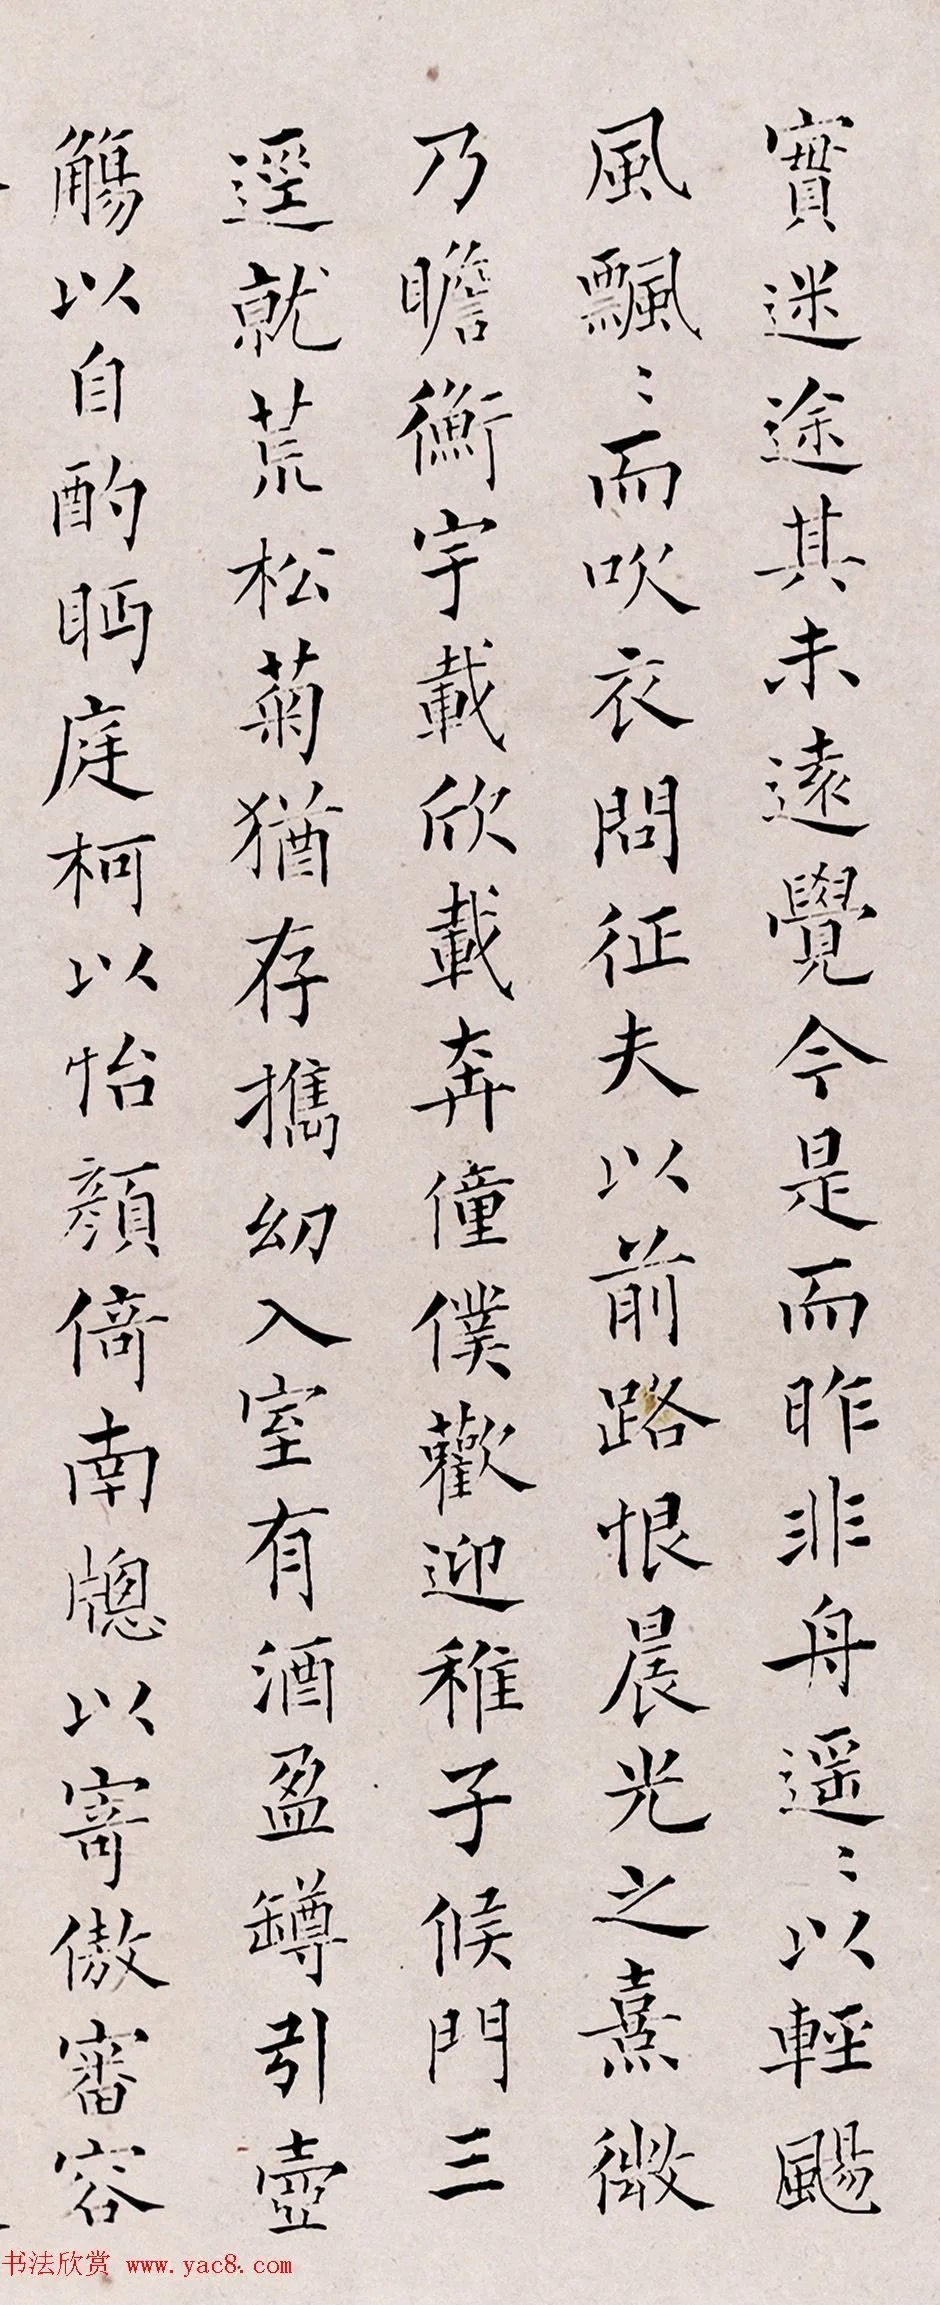 實迷途其未遠覺今是而昨非舟遥〻以輕颺
風飄〻而吹衣問征夫以前路恨晨光之熹微
乃瞻衡宇載欣載奔僮僕歡迎稚子候門三
逕就荒松菊猶存擕幼入室有酒盈罇引壺
觴以自酌眄庭柯以怡顔倚南牎以寄傲審容
书法欣赏 www.yac8.com